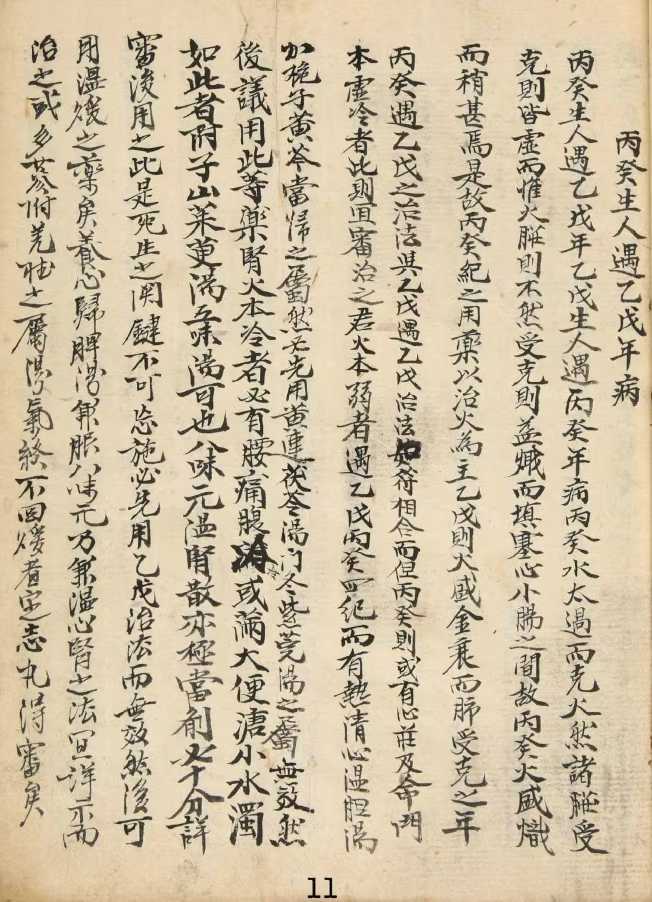 丙癸生人遇乙戊年病
丙癸生人遇乙戊年乙戊生人遇丙癸年病丙癸水太過而克火然諸臟受
克則皆虛而惟火臟則不然受克則益熾而填塞心小腸之間故丙癸火盛熾
而稍甚焉是故丙癸紀之用藥以治火為主乙戊則火盛金衰而肺受克之年
丙癸遇乙戊之治法與乙戊遇乙戊治法如符相合而但丙癸則或有心莊及命門
本虛冷者此則宜審治之君火本弱者遇乙戊丙癸四紀而有熱清心溫胆湯
加梔子黃芩當歸之屬然必先用黃連茯苓湯門冬紫莞湯之屬無效然
後議用此等藥腎火本冷者必有腰痛腹痛或滿大便溏小水濁
如此者附子山茱萸湯五味湯可也八味元溫腎散亦極當劑必十分詳
審後用之此是死生之関鍵不可忽施必先用乙戊治法而無效然後可
用溫煖之藥矣養心歸脾湯兼脹八味元乃兼溫心腎之法冥詳示而
治之或多蔘附芪桂之屬湯氣終不回煖者定志丸得審矣
11